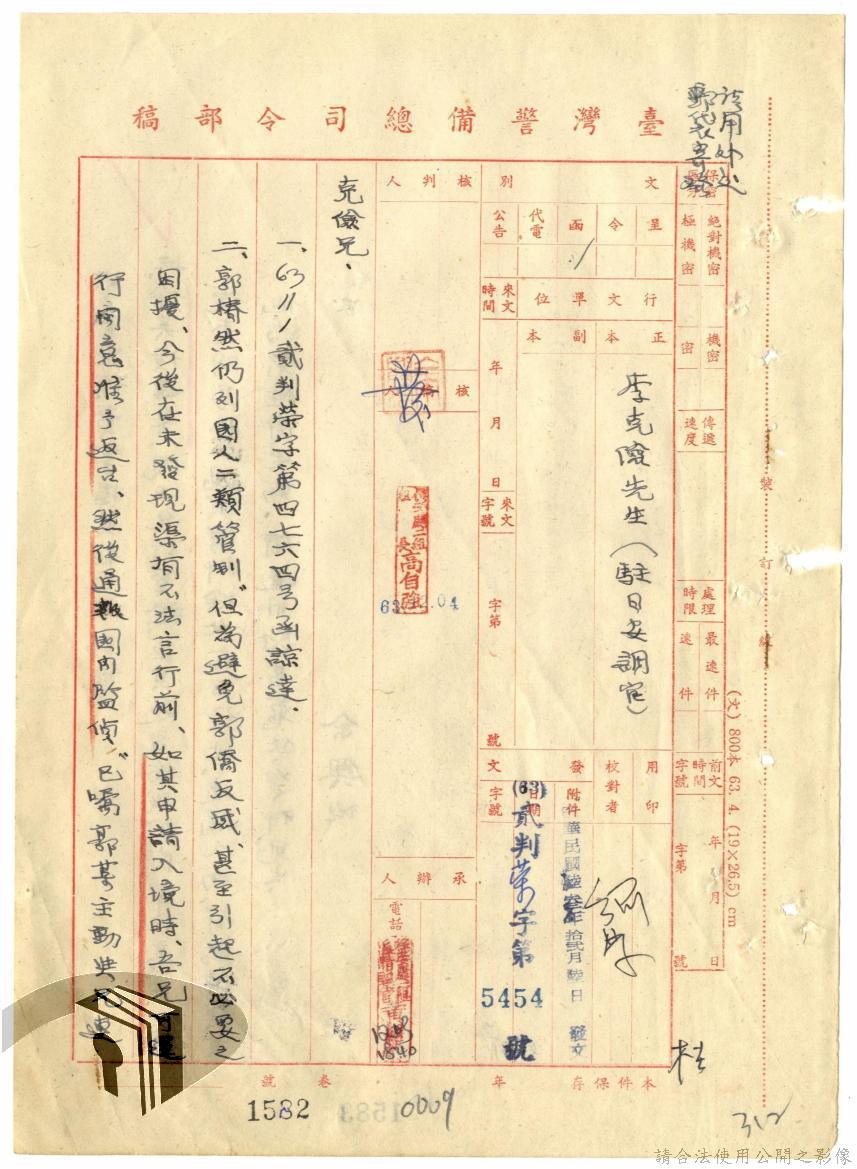 請用外交
郵袋寄發
臺灣警備總司令部稿
保密區分
絕對機密
極機密
機密
密
傳遞速度
處理時限
最速件
速件
前文時間字號
年 月 日
字第 號
文別
呈
令
函
代電
公告
行文單位
正本
副本
李克險先生（駐日安調官）
來文時間
年 月 日
來文字號
字第 號
用印
校對者
發文
附件
日期
字號
中華民國陸叁年拾貳月陸日發文
(63)貳判榮字第5454號
核判人
核稿人
高自強
63
04
承辦人
電話
克儉兄、
一、63 11/1貳判榮字第四七六四号函諒達、
二、郭椿然仍列國人二類管制〝但為避免郭僑反感、甚至引起不必要之
困擾、今後在未發現渠有不法言行前、如其申請入境時、吾兄可逕
行同意准予返台、然後通報國內監偵〞已囑郭某主動與兄連
本件保存 年
卷號
1582
0009
312
(火) 800本 63. 4. (19×26.5) cm
裝訂線
請合法使用公開之影像